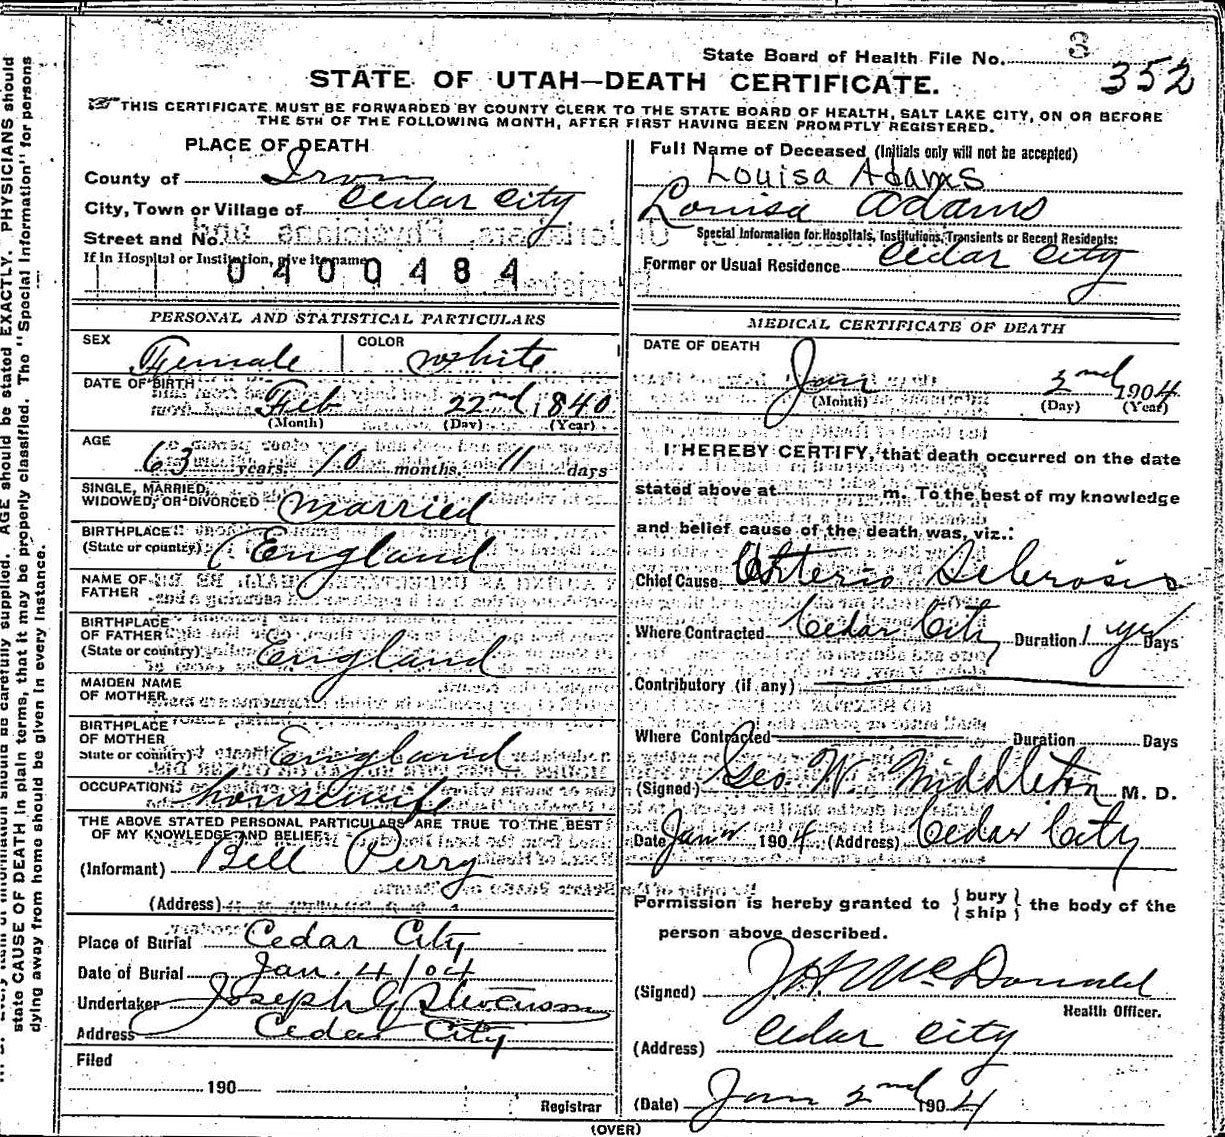 State Board of Health File No. 3
352
STATE OF UTAH—DEATH CERTIFICATE.
THIS CERTIFICATE MUST BE FORWARDED BY COUNTY CLERK TO THE STATE BOARD OF HEALTH, SALT LAKE CITY, ON OR BEFORE
THE 5TH OF THE FOLLOWING MONTH, AFTER FIRST HAVING BEEN PROMPTLY REGISTERED.
PLACE OF DEATH
County of Iron
City, Town or Village of Cedar City
Street and No.
If in Hospital or Institution, give its name
0400484
Full Name of Deceased (Initials only will not be accepted)
Louisa Adams
Louisa Adams
Special Information for Hospitals, Institutions, Transients or Recent Residents:
Former or Usual Residence Cedar City
PERSONAL AND STATISTICAL PARTICULARS
SEX Female COLOR White
DATE OF BIRTH Feb 22nd 1840
(Month) (Day) (Year)
AGE 63 years. 10 months. 11 days
SINGLE, MARRIED,
WIDOWED, OR DIVORCED Married
BIRTHPLACE
(State or country) England
NAME OF
FATHER
BIRTHPLACE
OF FATHER
(State or country) England
MAIDEN NAME
OF MOTHER
BIRTHPLACE
OF MOTHER
State or country) England
OCCUPATION housewife
THE ABOVE STATED PERSONAL PARTICULARS ARE TRUE TO THE BEST
OF MY KNOWLEDGE AND BELIEF.
(Informant) Bell Perry
(Address)
Place of Burial Cedar City
Date of Burial Jan. 4/04
Undertaker Joseph G Stevenson
Address Cedar City
Filed
190
Registrar
MEDICAL CERTIFICATE OF DEATH
DATE OF DEATH
Jan 2nd 1904
(Month) (Day) (Year)
I HEREBY CERTIFY, that death occurred on the date
stated above at m. To the best of my knowledge
and belief cause of the death was, viz.:
Chief Cause
Where Contracted Cedar City Duration 1 yr Days
Contributory (if any)
Where Contracted Duration Days
(Signed) Geo W. Middleton M. D.
Date Jan 1904 (Address) Cedar City
Permission is hereby granted to { bury ship } the body of the
person above described.
(Signed) J H McDonald
Health Officer.
(Address) Cedar City
(Date) Jan 2nd 1904
(OVER)
state CAUSE OF DEATH in plain terms, that it may be properly classified. The "Special Information" for persons
dying away from home should be given in every instance.